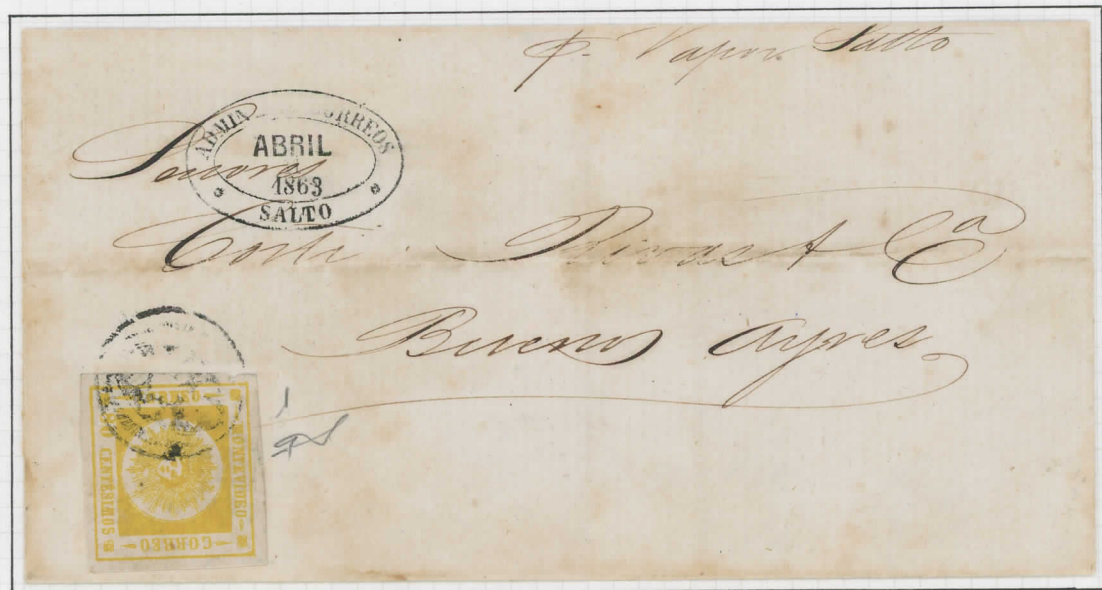 p. Vapor Salto
ADMIN CORREOS
ABRIL
1863
SALTO
Senores
Costi Rivas & Cª
Buenos Ayres
CORREO
MONTEVIDEO
CENTESIMOS
CORREO